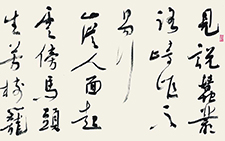 見說蠶叢
路崎嶇不
易行
山從人面起
雲傍馬頭
生芳樹籠